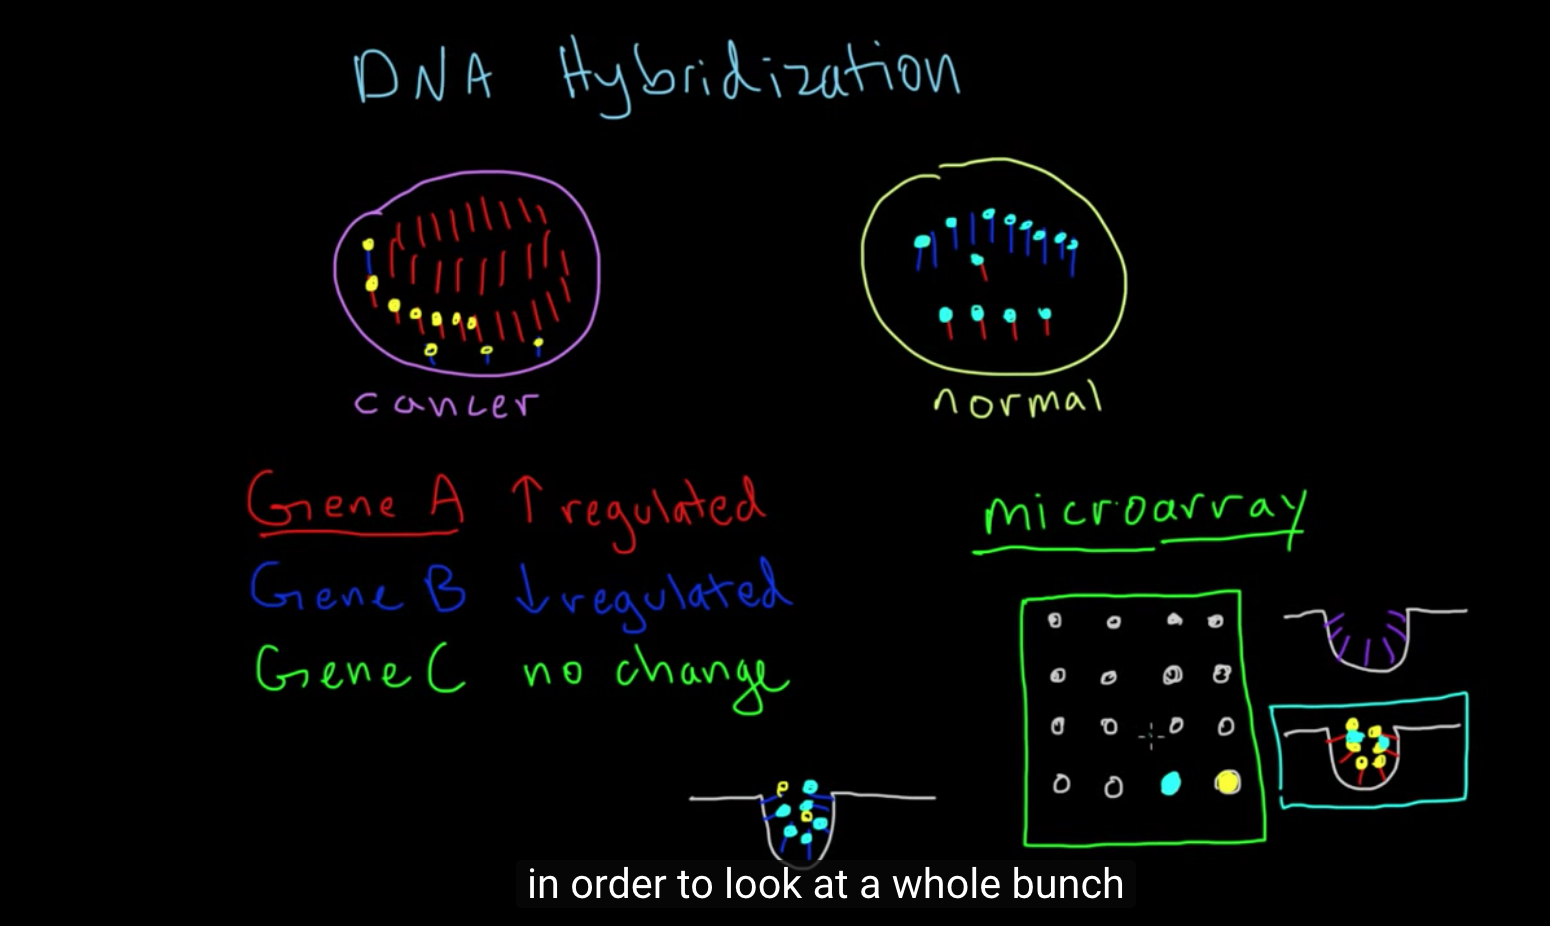 DNA Hybridization
cancer
normal
Gene A ↑ regulated
Gene B ↓ regulated
Gene C no change
microarray
in order to look at a whole bunch